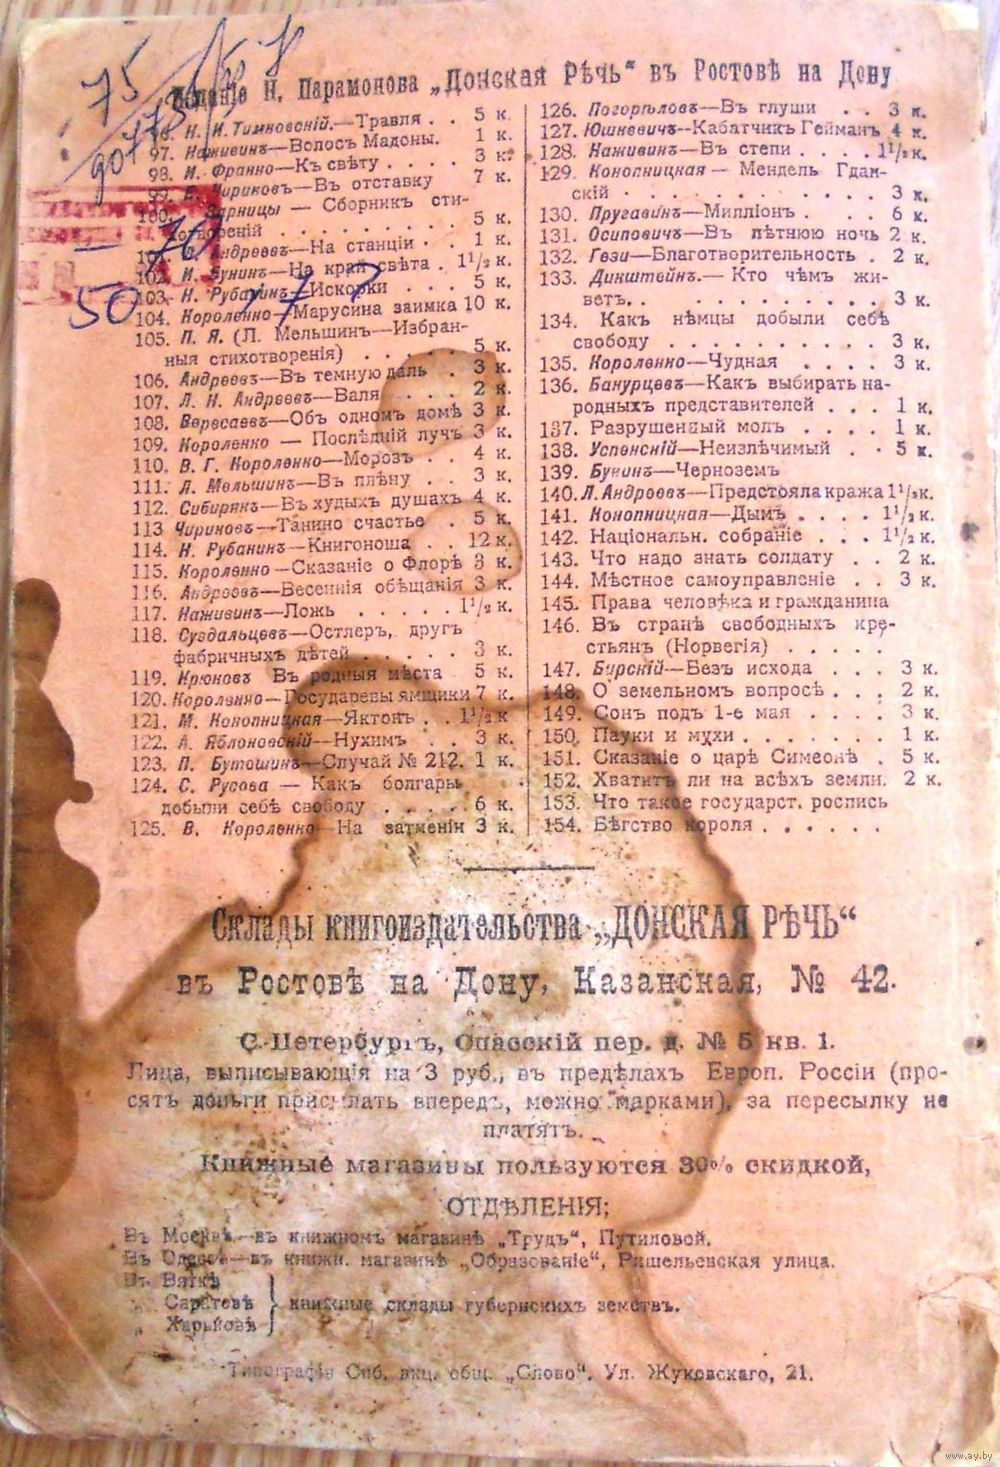 75
90773
70
50
77?
Изданіе Н. Парамонова „Донская Рѣчь" въ Ростовѣ на Дону
96. Н. И. Тимковскій.—Травля . . 5 к.
97. Наживинъ—Волосъ Мадоны. 1 к.
98. И. Франко—Къ свѣту . . . . 3 к.
99. Е. Чириковъ—Въ отставку 7 к.
100. Зарницы — Сборникъ сти-
хотвореній . . . . . . . . . 5 к.
101. Л. Андреевъ—На станціи . . 1 к.
102. И. Бунинъ—На край свѣта . 1½ к.
103. Н. Рубакинъ—Искорки . . . 5 к.
104. Короленко—Марусина заимка 10 к.
105. П. Я. (Л. Мельшинъ—Избран-
ныя стихотворенія) . . . . . . 5 к.
106. Андреевъ—Въ темную даль . 3 к.
107. Л. Н. Андреевъ—Валя . . . . 2 к.
108. Вересаевъ—Объ одномъ домѣ 3 к.
109. Короленко — Послѣдній лучъ 3 к.
110. В. Г. Короленко—Морозъ . . 4 к.
111. Л. Мельшинъ—Въ плѣну . . . 3 к.
112. Сибирякъ—Въ худыхъ душахъ 4 к.
113 Чириковъ—Танино счастье . 5 к.
114. Н. Рубакинъ—Книгоноша . . 12 к.
115. Короленко—Сказаніе о Флорѣ 3 к.
116. Андреевъ—Весеннія обѣщанія 3 к.
117. Наживинъ—Ложь . . . . . 1½ к.
118. Суздальцевъ—Остлеръ, другъ
фабричныхъ дѣтей . . . . . 3 к.
119. Крюковъ Въ родныя мѣста 5 к.
120. Короленко—Государевы ямщики 7 к.
121. М. Конопницкая—Яктонъ . . 1½ к
122. А. Яблоновскій—Нухимъ . . 3 к.
123. П. Бутошинъ—Случай № 212. 1 к.
124. С. Русова — Какъ болгары
добыли себѣ свободу . . . . . 6 к.
125. В. Короленко—На затменіи 3 к.
126. Погорѣловъ—Въ глуши . . 3 к.
127. Юшкевичъ—Кабатчикъ Гейманъ 4 к.
128. Наживинъ—Въ степи . . . . 1½ к.
129. Конопницкая — Мендель Гдан-
скій . . . . . . . . . . . 3 к.
130. Пругавинъ—Милліонъ . . . 6 к.
131. Осиповичъ—Въ лѣтнюю ночь 2 к.
132. Гези—Благотворительность . 2 к.
133. Динштейнъ.— Кто чѣмъ жи-
ветъ. . . . . . . . . . . 3 к.
134. Какъ нѣмцы добыли себѣ
свободу . . . . . . . . . . 3 к.
135. Короленко—Чудная . . . . 3 к.
136. Банурцевъ—Какъ выбирать на-
родныхъ представителей . . . 1 к.
137. Разрушенный молъ . . . . 1 к.
138. Успенскій—Неизлѣчимый . . 5 к.
139. Бунинъ—Черноземъ
140. Л. Андреевъ—Предстояла кража 1½ к.
141. Конопницкая—Дымъ . . . . 1½ к.
142. Національн. собраніе . . . 1½ к.
143. Что надо знать солдату . . 2 к.
144. Мѣстное самоуправленіе . . 3 к.
145. Права человѣка и гражданина
146. Въ странѣ свободныхъ кре-
стьянъ (Норвегія) . . . . .
147. Бурскій—Безъ исхода . . . 3 к.
148. О земельномъ вопросѣ . . . 2 к.
149. Сонъ подъ 1-е мая . . . . 3 к.
150. Пауки и мухи . . . . . . . 1 к.
151. Сказаніе о царѣ Симеонѣ . 5 к.
152. Хватитъ ли на всѣхъ земли. 2 к.
153. Что такое государст. роспись
154. Бѣгство короля . . . . . .
Склады книгоиздательства „ДОНСКАЯ РѢЧЬ"
въ Ростовѣ на Дону, Казанская, № 42.
С.-Петербургъ, Спасскій пер. д. № 5 кв. 1.
Лица, выписывающія на 3 руб., въ предѣлахъ Европ. Россіи (про-
сятъ деньги присылать впередъ, можно марками), за пересылку не
платятъ.
Книжные магазины пользуются 30% скидкой,
ОТДѢЛЕНІЯ;
Въ Москвѣ—въ книжномъ магазинѣ „Трудъ", Путиловой.
Въ Одессѣ—въ книжн. магазинѣ „Образованіе", Ришельевская улица.
Въ Вяткѣ
„ Саратовѣ } книжные склады губернскихъ земствъ.
„ Харьковѣ
Типографія Спб. акц. общ. „Слово". Ул. Жуковскаго, 21.
www.ay.by